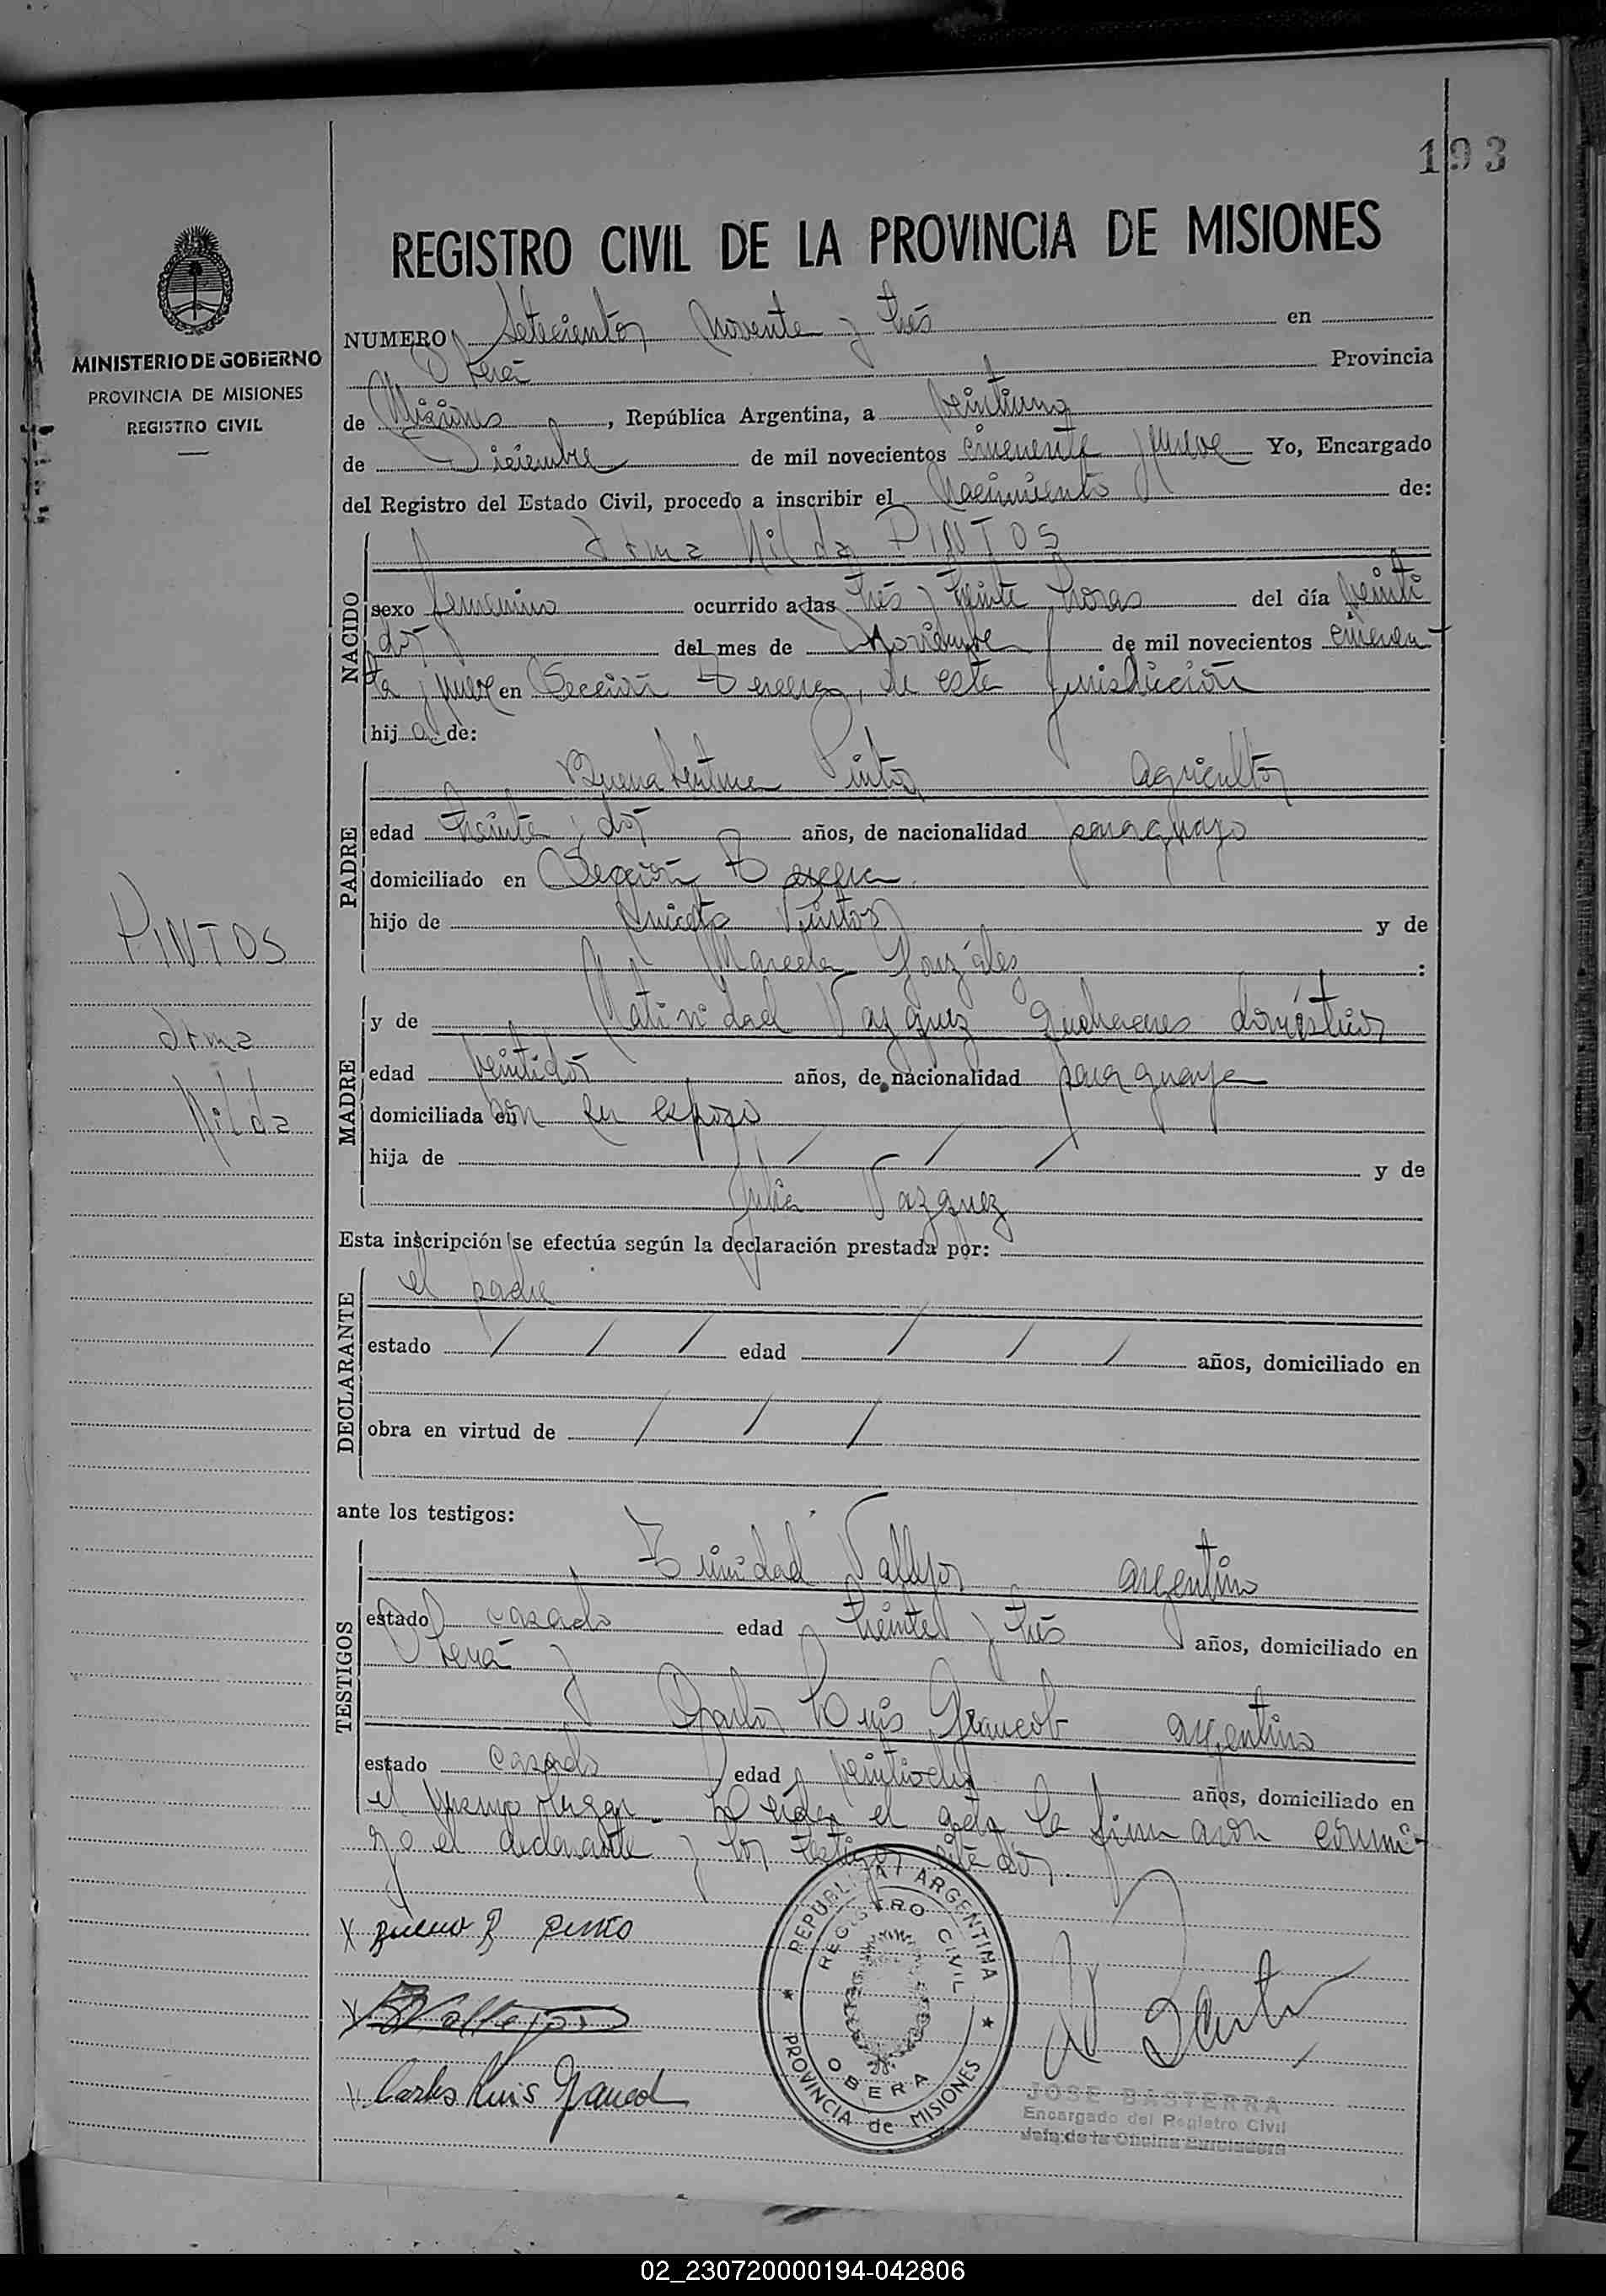 193
REGISTRO CIVIL DE LA PROVINCIA DE MISIONES
MINISTERIO DE GOBIERNO
PROVINCIA DE MISIONES
REGISTRO CIVIL
NUMERO Setecientos noventa y trés en
Oberá Provincia
de Misiones, República Argentina, a veintiuno
de Diciembre de mil novecientos cincuenta y nueve Yo, Encargado
del Registro del Estado Civil, procedo a inscribir el Nacimiento de:
NACIDO
Irma Nilda PINTOS
sexo femenino ocurrido a las trés y treinta horas del día veinti
dos del mes de Noviembre de mil novecientos cincuen
ta y nueve en Sección Tercera, de esta jurisdicción
hij a de:
PADRE
Buenaventura Pintos agricultor
edad treinta y dos años, de nacionalidad paraguayo
domiciliado en Sección Tercera
hijo de Aniceto Pintos y de
Marcela Gonzáles :
MADRE
y de Natividad Vazquez quehaceres domésticos
edad veintidos años, de nacionalidad paraguaya
domiciliada con su esposo
hija de / / / y de
Julia Vazquez
Esta inscripción se efectúa según la declaración prestada por:
DECLARANTE
el padre
estado / / / edad / / / años, domiciliado en
obra en virtud de / / /
ante los testigos:
TESTIGOS
Trinidad Vallejos argentino
estado casado edad treinta y trés años, domiciliado en
Oberá y
Carlos Luis argentino
estado casado edad veintiocho años, domiciliado en
el mismo lugar. Leida el acta la firmaron conmi-
go el declarante y los testigos citados.
PINTOS
Irma
Nilda
X B pinto
X Vallejos
X Carlos Luis
REPUBLICA ARGENTINA
REGISTRO CIVIL
OBERA
PROVINCIA de MISIONES
JOSE BASTERRA
Encargado del Registro Civil
Jefe de la Oficina Enroladora
02_230720000194-042806